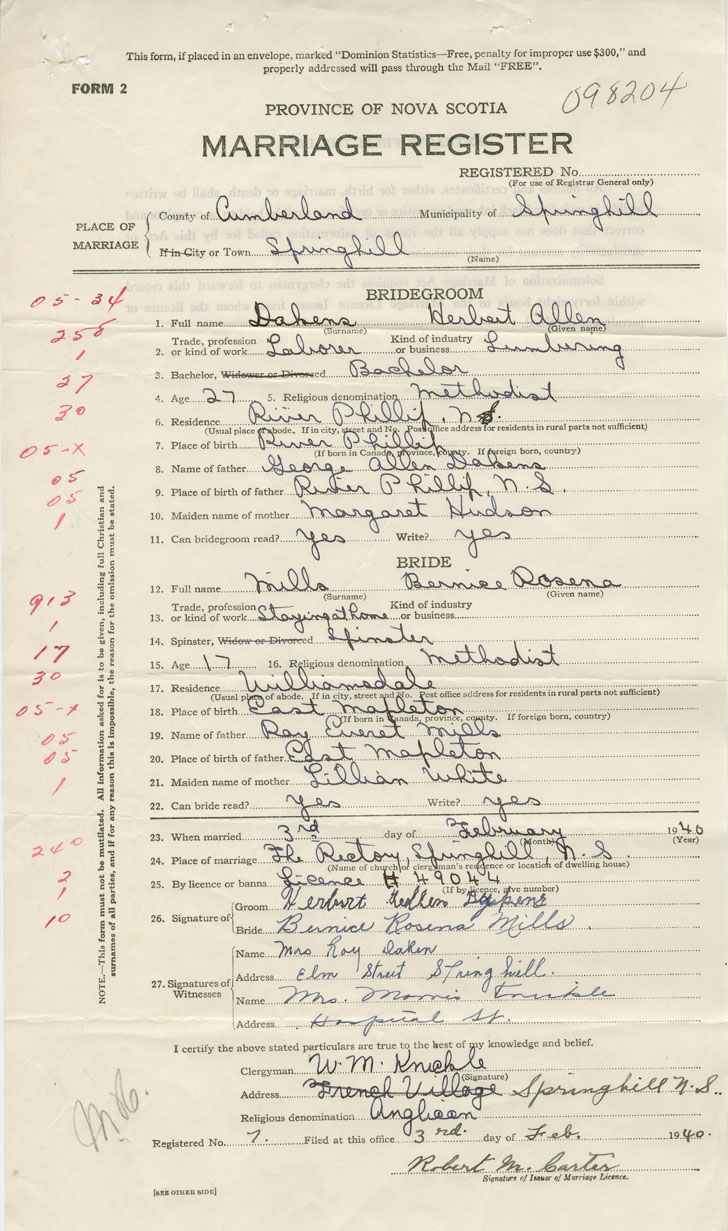 This form, if placed in an envelope, marked "Dominion Statistics—Free, penalty for improper use $300," and
properly addressed will pass through the Mail "FREE".
FORM 2
098204
PROVINCE OF NOVA SCOTIA
MARRIAGE REGISTER
REGISTERED No.
(For use of Registrar General only)
PLACE OF MARRIAGE
County of Cumberland Municipality of Springhill
If in City or Town Springhill (Name)
BRIDEGROOM
05-34
1. Full name Dakens Herbert Allen
(Surname) (Given name)
256
Trade, profession Kind of industry
2. or kind of work Laborer or business Lumbering
1
3. Bachelor, Widower or Divorced Bachelor
27
4. Age 27 5. Religious denomination Methodist
30
6. Residence River Phillip, N.S.
(Usual place of abode. If in city, street and No. Post office address for residents in rural parts not sufficient)
05-x
7. Place of birth River Phillip
(If born in Canada, province, county. If foreign born, country)
05
8. Name of father George Allen Dakens
05
9. Place of birth of father River Phillip, N.S.
10. Maiden name of mother Margaret Hudson
1
11. Can bridegroom read? yes Write? yes
BRIDE
12. Full name Mills Bernice Rosena
(Surname) (Given name)
913
Trade, profession Kind of industry
13. or kind of work Staying at home or business
1
14. Spinster, Widow or Divorced Spinster
17
15. Age 17 16. Religious denomination Methodist
30
17. Residence Williamsdale
(Usual place of abode. If in city, street and No. Post office address for residents in rural parts not sufficient)
05-x
18. Place of birth East Mapleton
(If born in Canada, province, county. If foreign born, country)
05
19. Name of father Ray Everet Mills
05
20. Place of birth of father East Mapleton
21. Maiden name of mother Lillian White
1
22. Can bride read? yes Write? yes
23. When married 3rd day of February 1940
(Month) (Year)
240
24. Place of marriage The Rectory, Springhill, N.S.
(Name of church or clergyman's residence or location of dwelling house)
2
25. By licence or banns Licence # 49044
(If by licence, give number)
1
10
26. Signature of
Groom Herbert Allen
Bride Bernice Rosena Mills.
27. Signatures of Witnesses
Name Mrs Roy Daken
Address Elm Street Springhill.
Name Mrs. Morris
Address Hospital St.
NOTE.—This form must not be mutilated. All information asked for is to be given, including full Christian and
surnames of all parties, and if for any reason this is impossible, the reason for the omission must be stated.
I certify the above stated particulars are true to the best of my knowledge and belief.
Clergyman W. M. Knickle
(Signature)
Address French Village Springhill N.S.
Religious denomination Anglican
Registered No. 7. Filed at this office 3rd. day of Feb. 1940.
Robert M. Carter
Signature of Issuer of Marriage Licence.
[SEE OTHER SIDE]